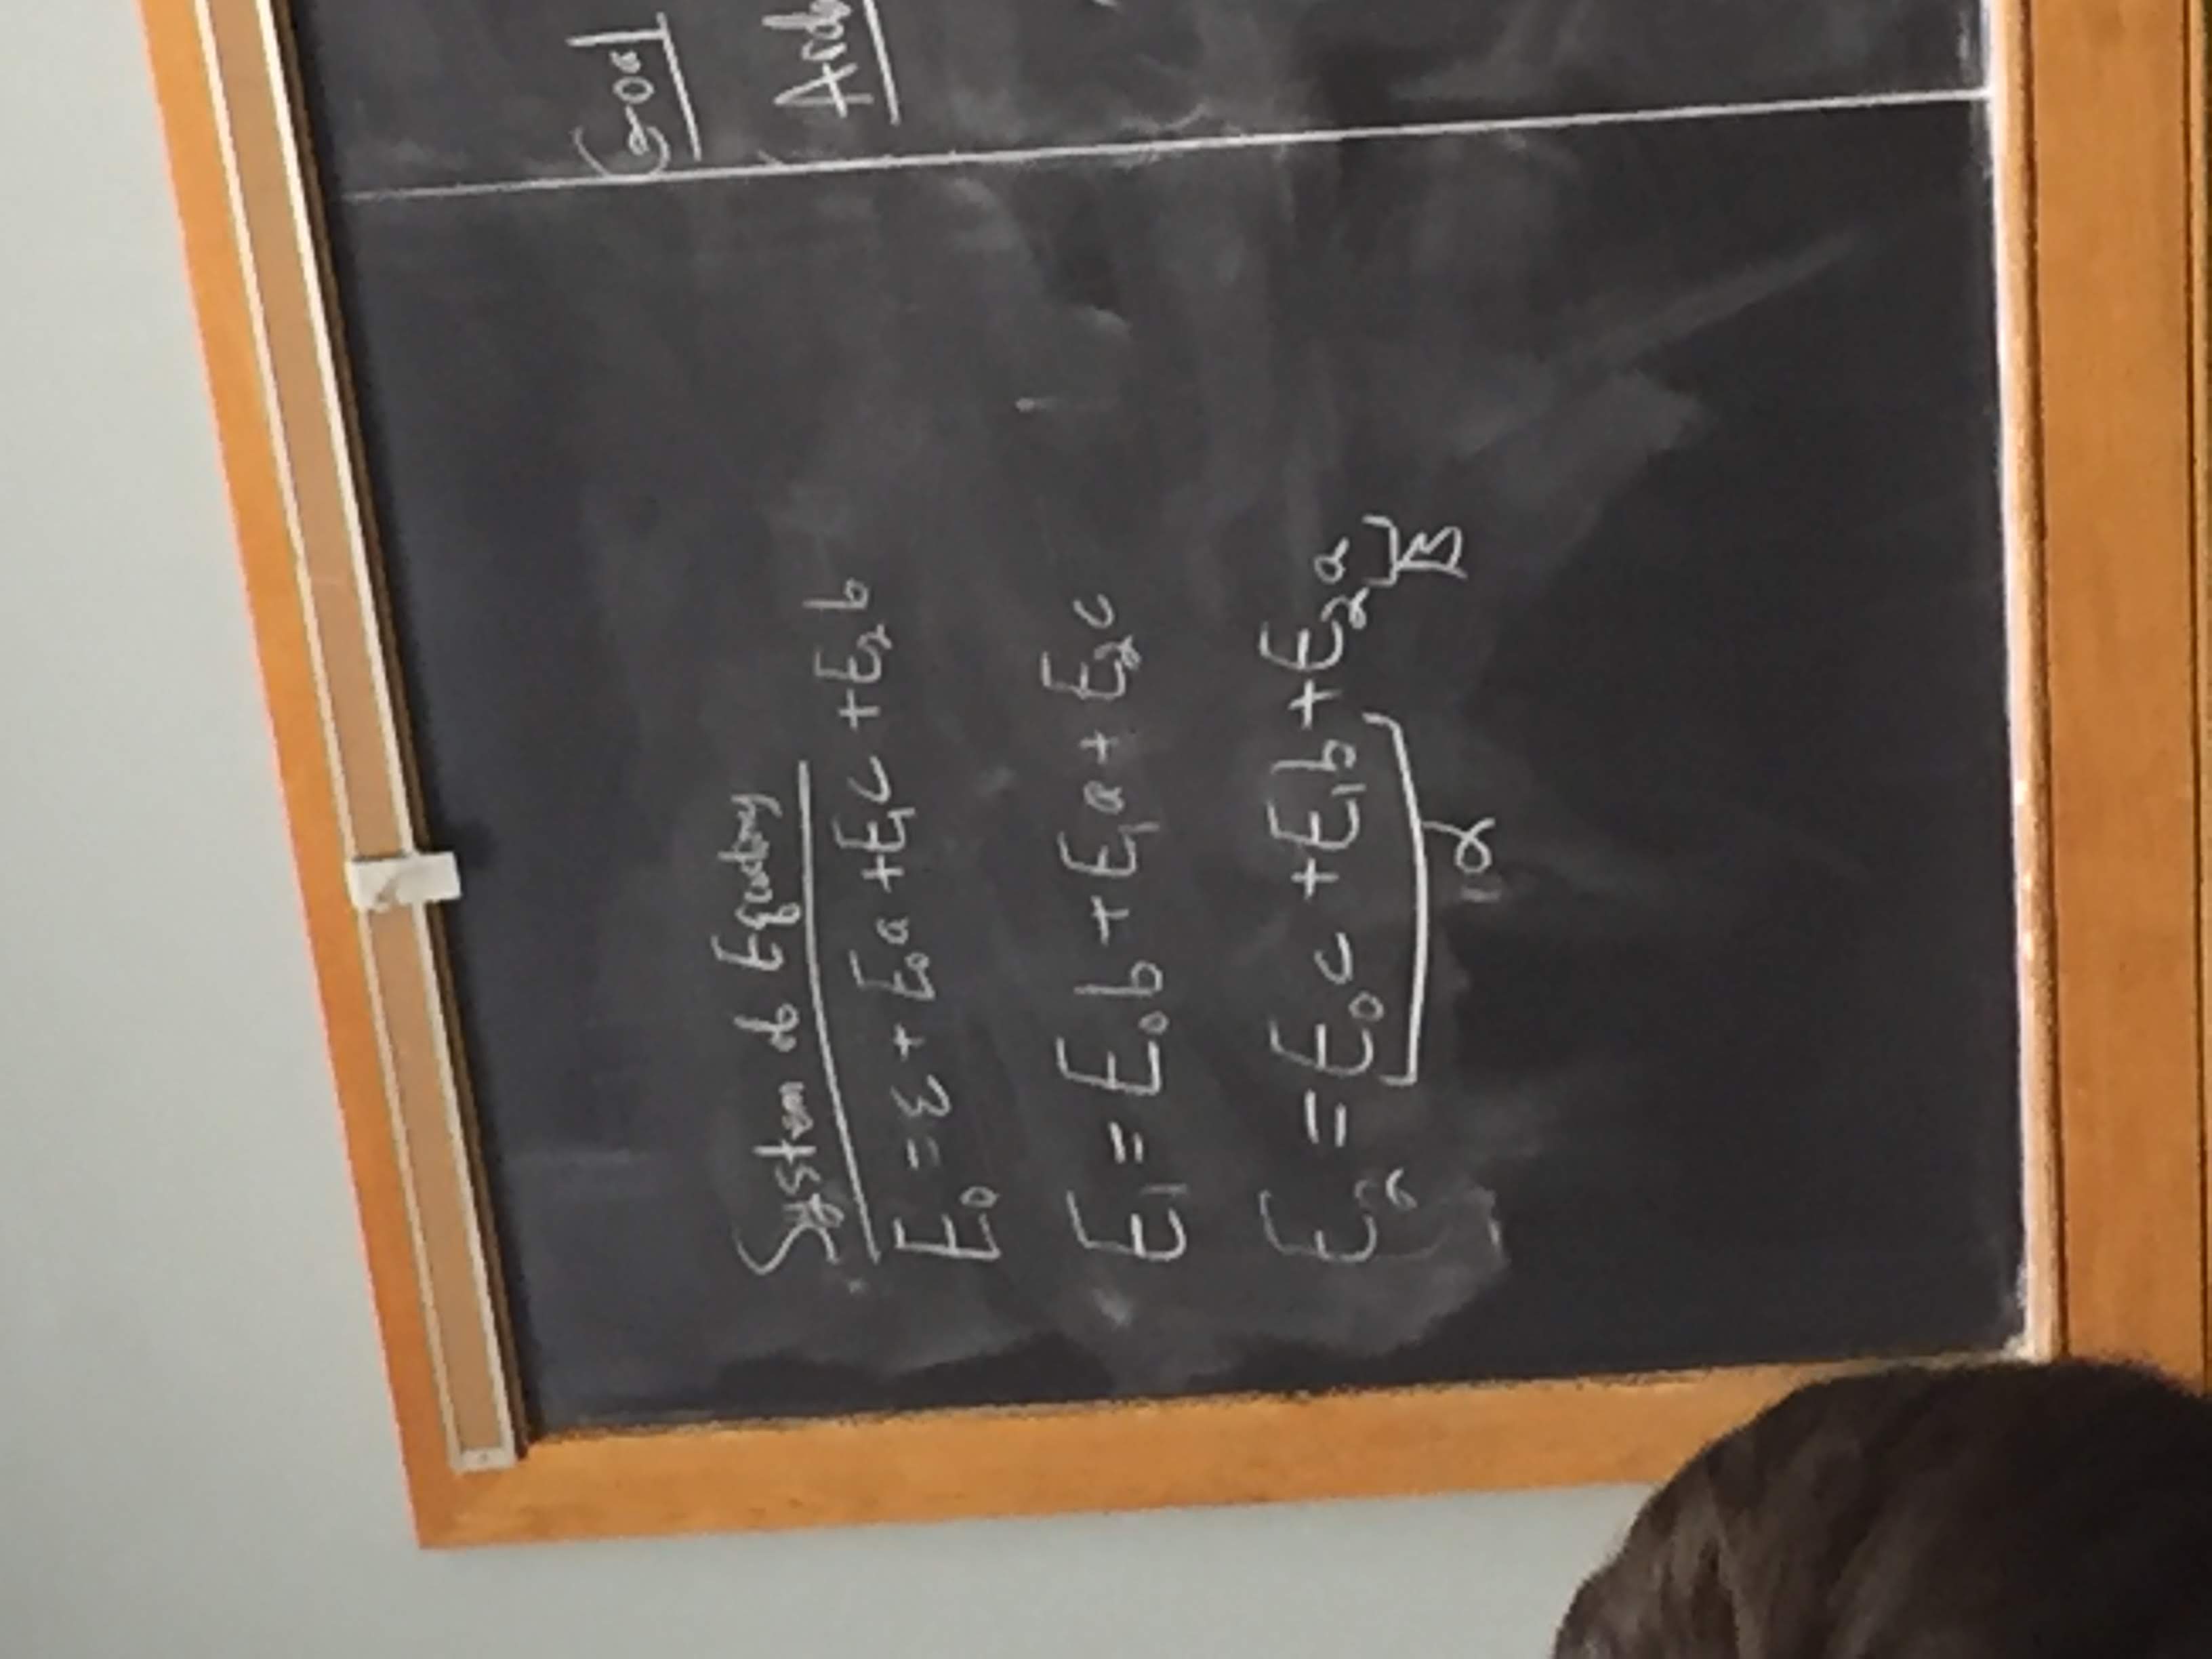 System of Equations
E₀ = ε + E₀a + E₁c + E₂b
E₁ = E₀b + E₁a + E₂c
E₂ = E₀c + E₁b + E₂a
α B
Goal
Ard